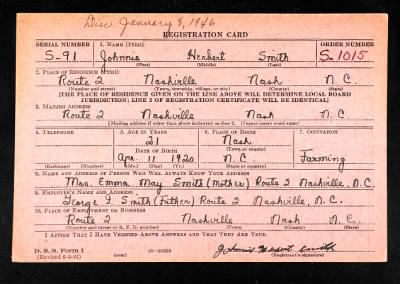 Disc. January 8, 1946
REGISTRATION CARD
SERIAL NUMBER 1. NAME (Print) ORDER NUMBER
S-91 Johnnie Herbert Smith S-1015
(First) (Middle) (Last)
2. PLACE OF RESIDENCE (Print)
Route 2 Nashville Nash N.C.
(Number and street) (Town, township, village, or city) (County) (State)
[THE PLACE OF RESIDENCE GIVEN ON THE LINE ABOVE WILL DETERMINE LOCAL BOARD
JURISDICTION; LINE 2 OF REGISTRATION CERTIFICATE WILL BE IDENTICAL]
3. MAILING ADDRESS
Route 2 Nashville Nash N.C.
[Mailing address if other than place indicated on line 2. If same insert word same]
4. TELEPHONE 5. AGE IN YEARS 6. PLACE OF BIRTH 7. OCCUPATION
21 Nash
DATE OF BIRTH (Town or county)
Apr. 11 1920 N.C. Farming
(Exchange) (Number) (Mo.) (Day) (Yr.) (State or country)
8. NAME AND ADDRESS OF PERSON WHO WILL ALWAYS KNOW YOUR ADDRESS
Mrs. Emma May Smith (Mother) Route 2 Nashville, N.C.
9. EMPLOYER'S NAME AND ADDRESS
George Smith (Father) Route 2 Nashville, N.C.
10. PLACE OF EMPLOYMENT OR BUSINESS
Route 2 Nashville Nash N.C.
(Number and street or R. F. D. number) (Town) (County) (State)
I AFFIRM THAT I HAVE VERIFIED ABOVE ANSWERS AND THAT THEY ARE TRUE.
D. S. S. Form 1 Smith
(Revised 6-9-41) (Registrant's signature)